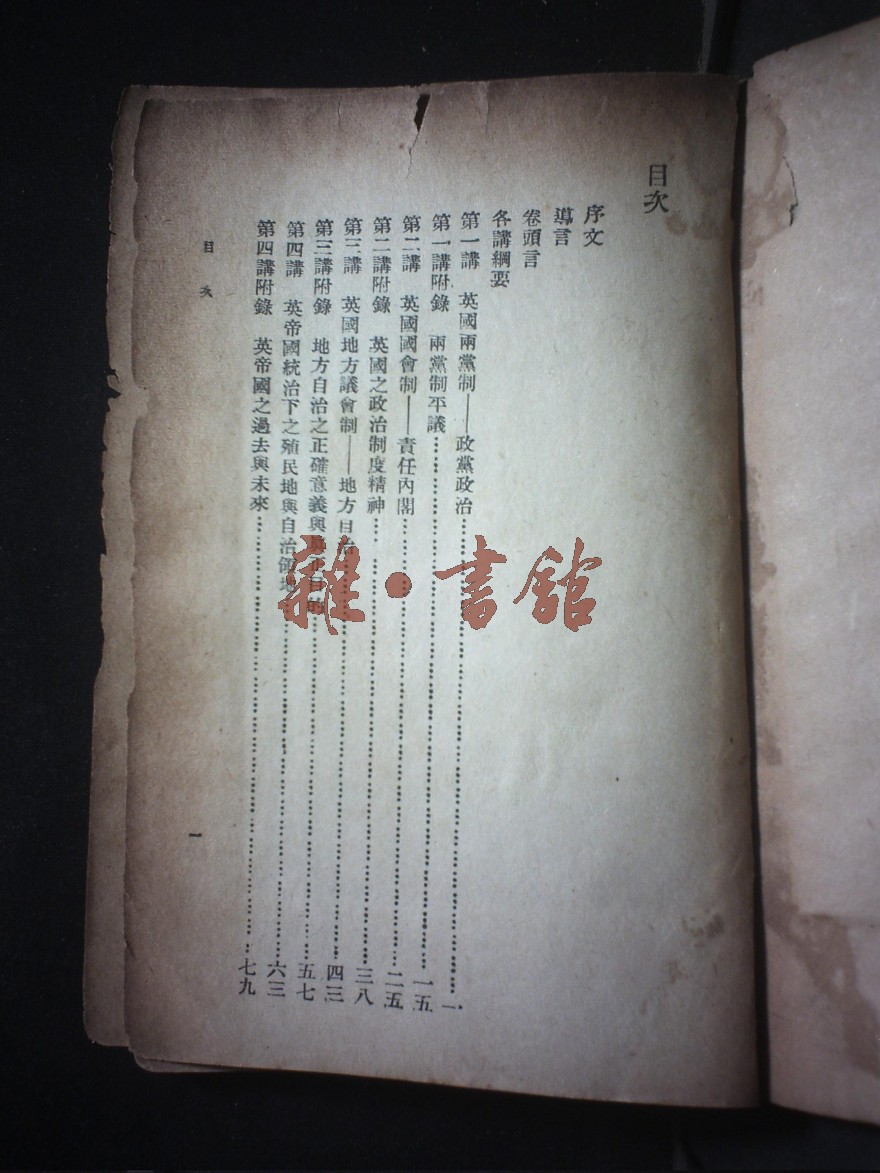 目次
序文
導言
卷頭言
各講綱要
第一講　英國兩黨制——政黨政治……一
第一講附錄　兩黨制平議……一五
第二講　英國國會制——責任內閣……二五
第二講附錄　英國之政治制度精神……三八
第三講　英國地方議會制——地方自治……四三
第三講附錄　地方自治之正確意義與真正目的……五七
第四講　英帝國統治下之殖民地與自治領地……六三
第四講附錄　英帝國之過去與未來……七九
目次
一
雜·書館